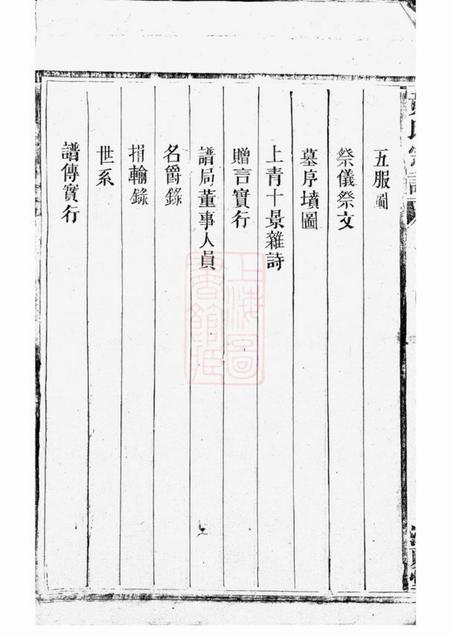 五服圖
祭儀祭文
墓序墳圖
上青十景雜詩
贈言實行
譜局董事人員
名爵錄
捐輸錄
世系
譜傳實行
上海圖書館藏